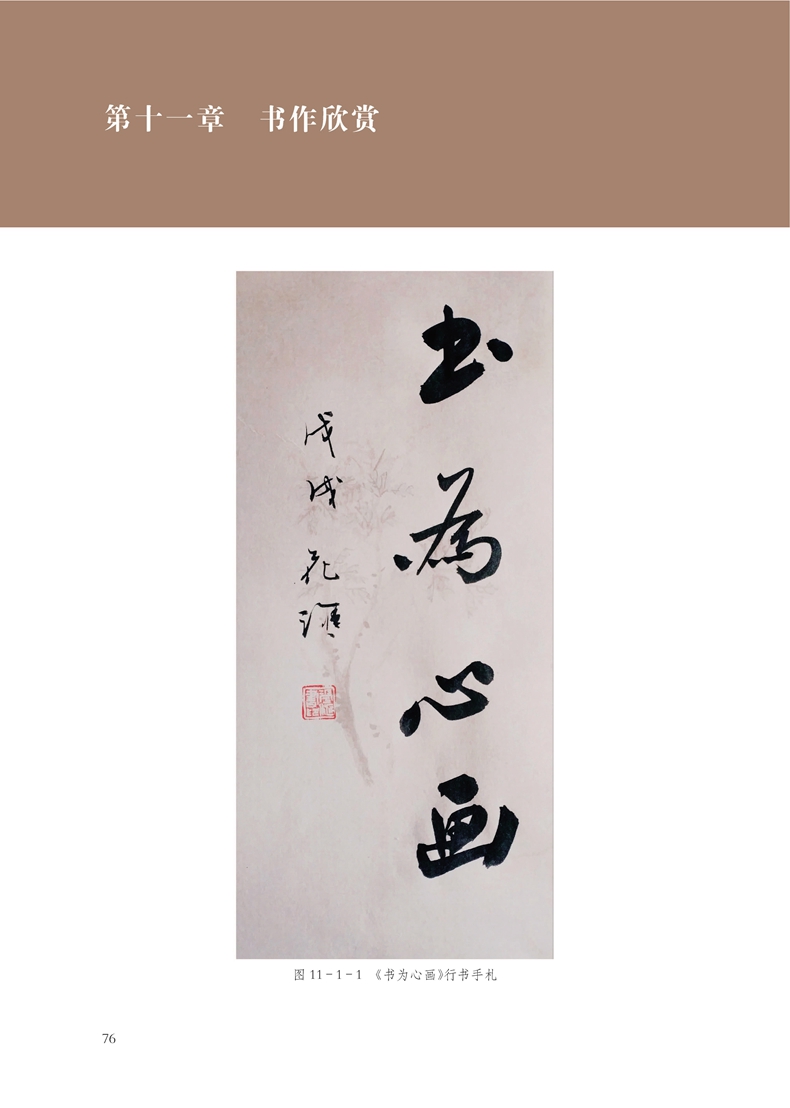 第十一章 书作欣赏
书为心画
戊戌
图 11-1-1 《书为心画》行书手札
76